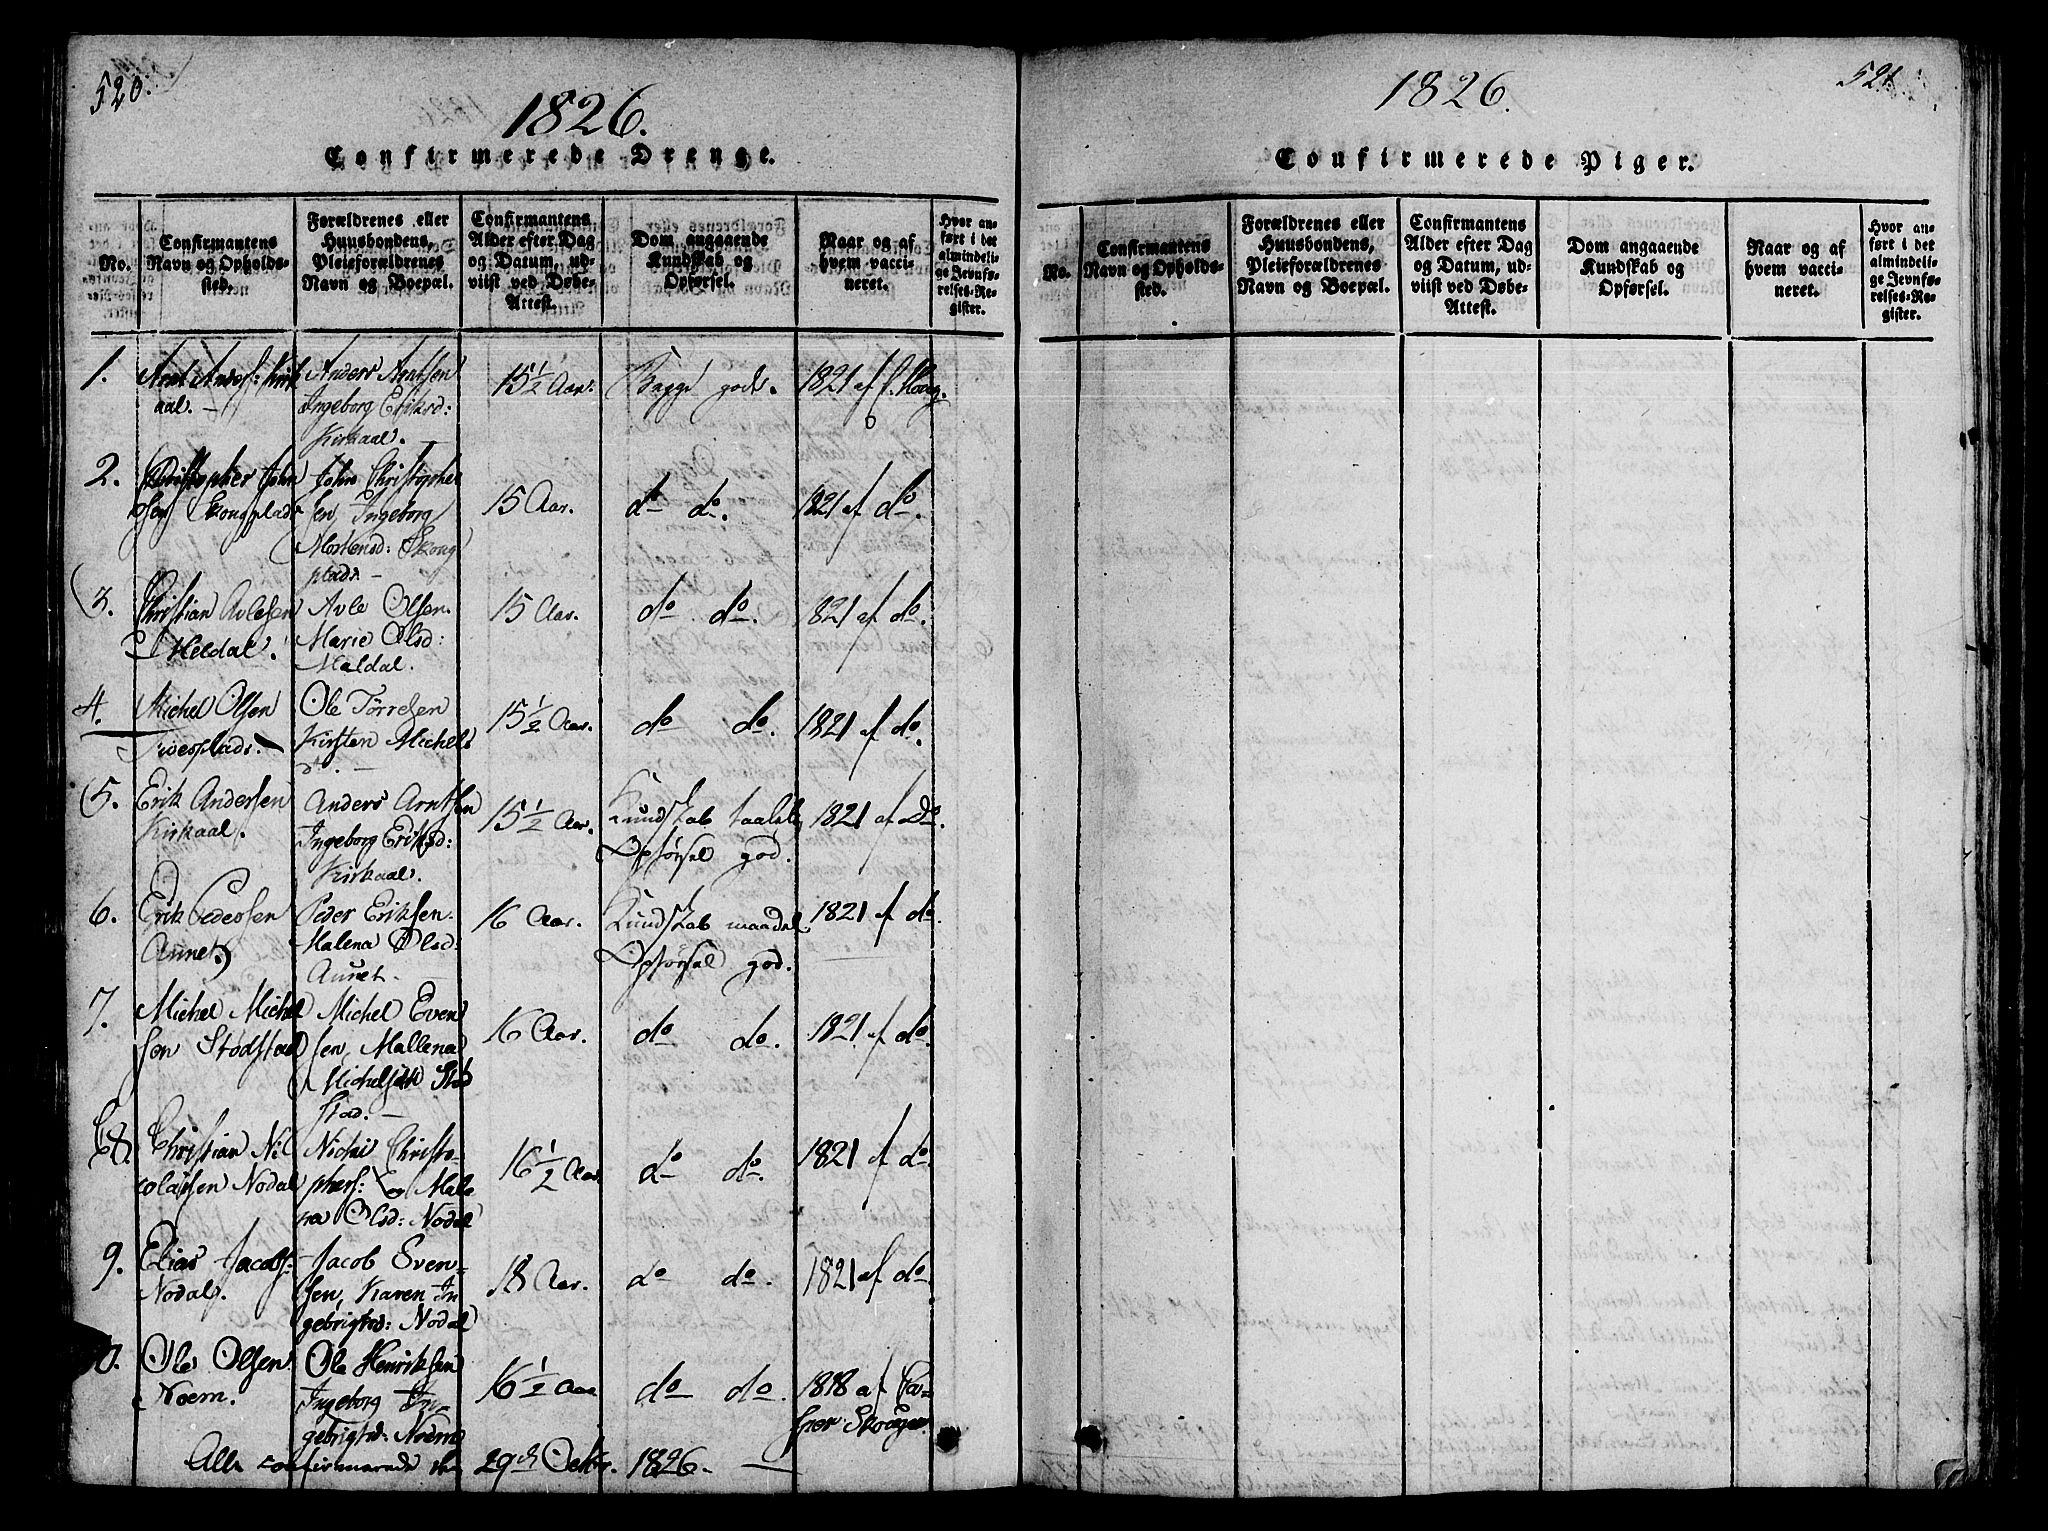 520.
1826.
Confirmerede Drenge.
No.
Confirmantens
Navn og Opholds-
sted.
Forældrenes eller
Huusbondens,
Pleieforældrenes
Navn og Boepæl.
Confirmantens
Alder efter Dag
og Datum, ud-
viist ved Døbe-
Attest.
Dom angaaende
Kundskab og
Opførsel.
Naar og af
hvem vacci-
neret.
Hvor an-
ført i det
almindeli-
ge Jevnfø-
relses-Re-
gister.
1.
Arnt Anders: Kirk
aal.
Anders Arntsen
Ingeborg Eriksd:
Kirkaal.
15 1/2 Aar.
Begge gode.
1821 af
2.
Christopher John
sen Skougplads
John Christopher
sen, Ingeborg
Mortensd: Skoug
plads
15 Aar.
do do.
1821 af do.
3.
Christian Avlesen
Meldal.
Avle Olsen
Marie Olsd:
Maldal.
15 Aar.
do do.
1821 af do.
4.
Michel Olsen
plads.
Ole Törresen
Kirsten Michels
d.
15 1/2 Aar.
do do.
1821 af do.
5.
Erik Andersen
Kirkaal.
Anders Arntsen
Ingeborg Eriksd:
Kirkaal.
15 1/2 Aar.
Kundskab taalel.
Opförsel god.
1821 af Do.
6.
Erik Pedersen
Aunet.
Peder Eriksen
Malena Olsd:
Aunet
16 Aar.
Kundskab maadel.
Opförsel god.
1821 af do.
7.
Michel Michel
sen Stödstad
Michel Even
sen, Mallena
Michelsdtr Stöd
stad.
16 Aar.
do do.
1821 af do.
8.
Christian Nic
olaisen Nodal
Nicolai Christo-
phers: og Male
na Olsd: Nodal
16 1/2 Aar
do do.
1821 af do.
9.
Elias Jacobs:
Nodal.
Jacob Even-
sen, Karen In
gebrigtsd: Nodal
18 Aar.
do do.
1821 af do.
0.
Ole Olsen
Noem.
Ole Henriksen
Ingeborg In-
gebrigtsd: Noem
16 1/2 Aar
do do.
1818 af
Alle confirmerede den 29de Octbr. 1826.
521.
1826.
Confirmerede Piger.
No.
Confirmantens
Navn og Opholds-
sted.
Forældrenes eller
Huusbondens,
Pleieforældrenes
Navn og Boepæl.
Confirmantens
Alder efter Dag
og Datum, ud-
viist ved Døbe-
Attest.
Dom angaaende
Kundskab og
Opførsel.
Naar og af
hvem vacci-
neret.
Hvor an-
ført i det
almindeli-
ge Jevnfø-
relses-Re-
gister.